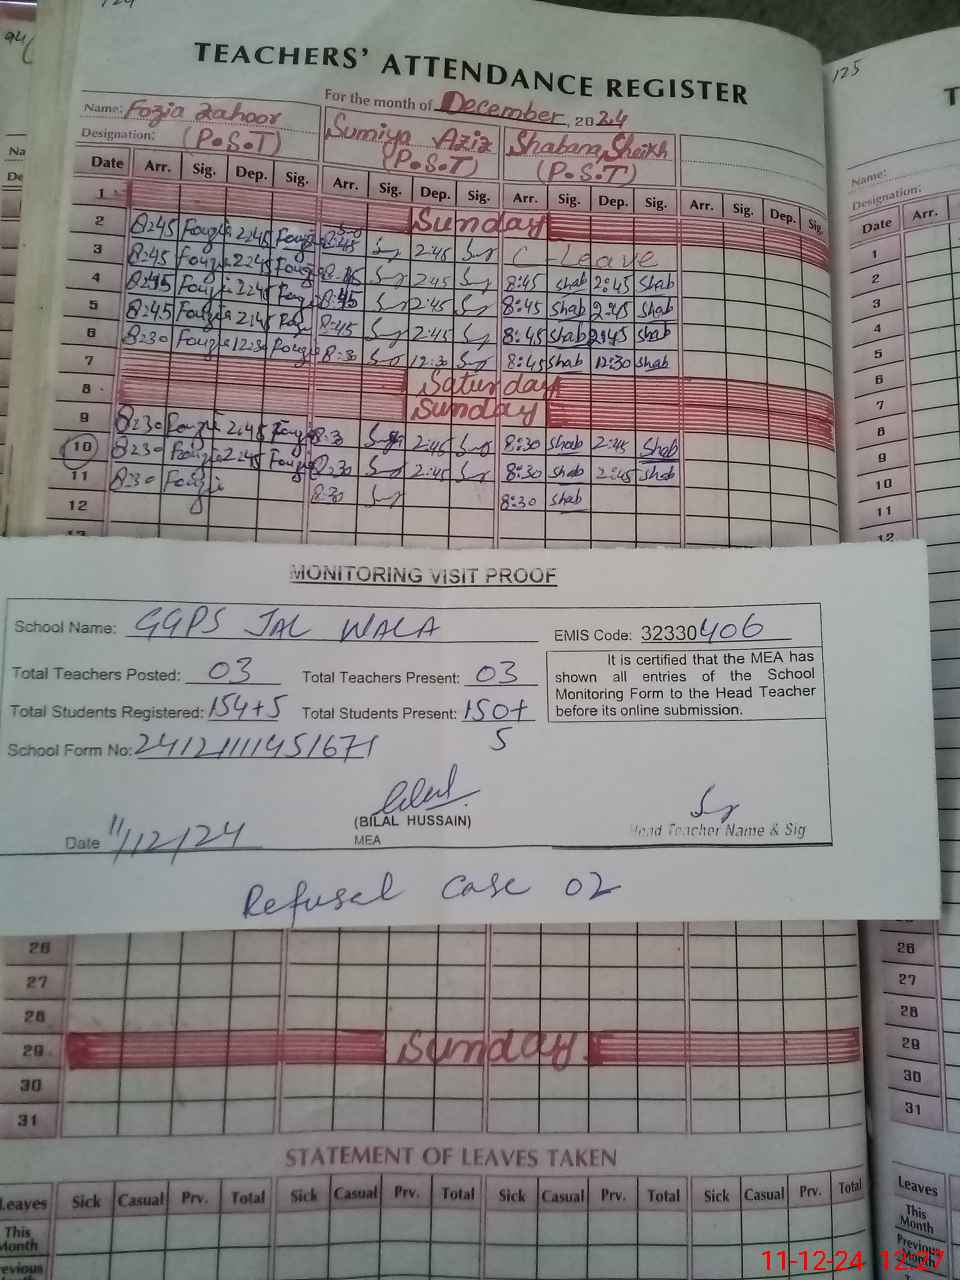 124
94
TEACHERS' ATTENDANCE REGISTER
For the month of December, 2024
Name: Fozia Zahoor
Sumiya Aziz
Shabana Sheikh
Designation: (P.S.T)
(P.S.T)
(P.S.T)
Date Arr. Sig. Dep. Sig. Arr. Sig. Dep. Sig. Arr. Sig. Dep. Sig. Arr. Sig. Dep. Sig.
1 Sunday
2 8:45 Fouzia 2:45 Fouzia 8:45 2:45 C-Leave
3 8:45 Fouzia 2:45 Fouzia 8:45 2:45 8:45 Shab 2:45 Shab
4 8:45 Fouzia 2:45 Fouzia 8:45 2:45 8:45 Shab 2:45 Shab
5 8:45 Fouzia 2:45 Fouzia 8:45 2:45 8:45 Shab 2:45 Shab
6 8:30 Fouzia 12:30 Fouzia 8:30 12:30 8:45 Shab 12:30 Shab
7 Saturday
8 Sunday
9 8:30 Fouzia 2:45 Fouzia 8:30 2:45 8:30 Shab 2:45 Shab
10 8:30 Fouzia 2:45 Fouzia 8:30 2:45 8:30 Shab 2:45 Shab
11 8:30 Fouzia 8:30 8:30 Shab
12
MONITORING VISIT PROOF
School Name: GGPS JAL WALA
EMIS Code: 32330406
Total Teachers Posted: 03 Total Teachers Present: 03
Total Students Registered: 154+5 Total Students Present: 150+5
School Form No: 24121111451671
It is certified that the MEA has
shown all entries of the School
Monitoring Form to the Head Teacher
before its online submission.
Date 11/12/24
(BILAL HUSSAIN)
MEA
Head Teacher Name & Sig
Refusal Case 02
26
27
28
29 Sunday
30
31
STATEMENT OF LEAVES TAKEN
Leaves Sick Casual Prv. Total Sick Casual Prv. Total Sick Casual Prv. Total Sick Casual Prv. Total
This
Month
Previous
125
T
Name:
Designation:
Date Arr.
1
2
3
4
5
6
7
8
9
10
11
12
26
27
28
29
30
31
Leaves
This
Month
Previous
Month
11-12-24 12:27